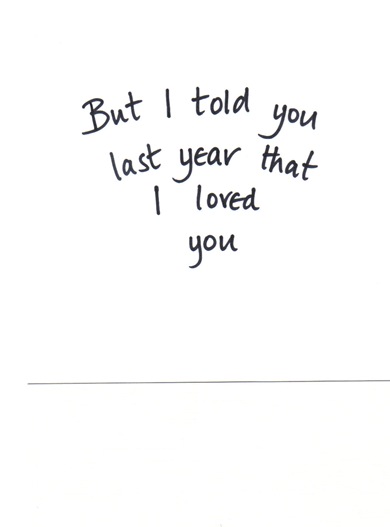 But I told you
last year that
I loved
you